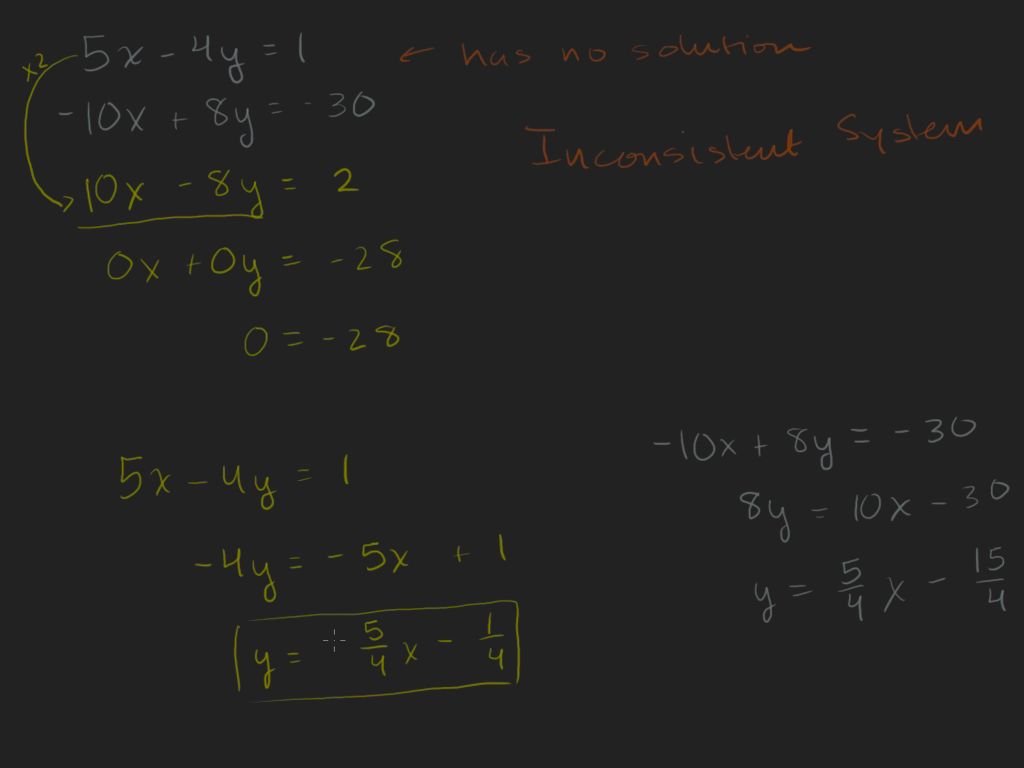 x2
5x - 4y = 1 ← has no solution
-10x + 8y = -30
Inconsistent System
10x - 8y = 2
0x + 0y = -28
0 = -28
5x - 4y = 1
-4y = -5x + 1
y = 5/4 x - 1/4
-10x + 8y = -30
8y = 10x - 30
y = 5/4 x - 15/4